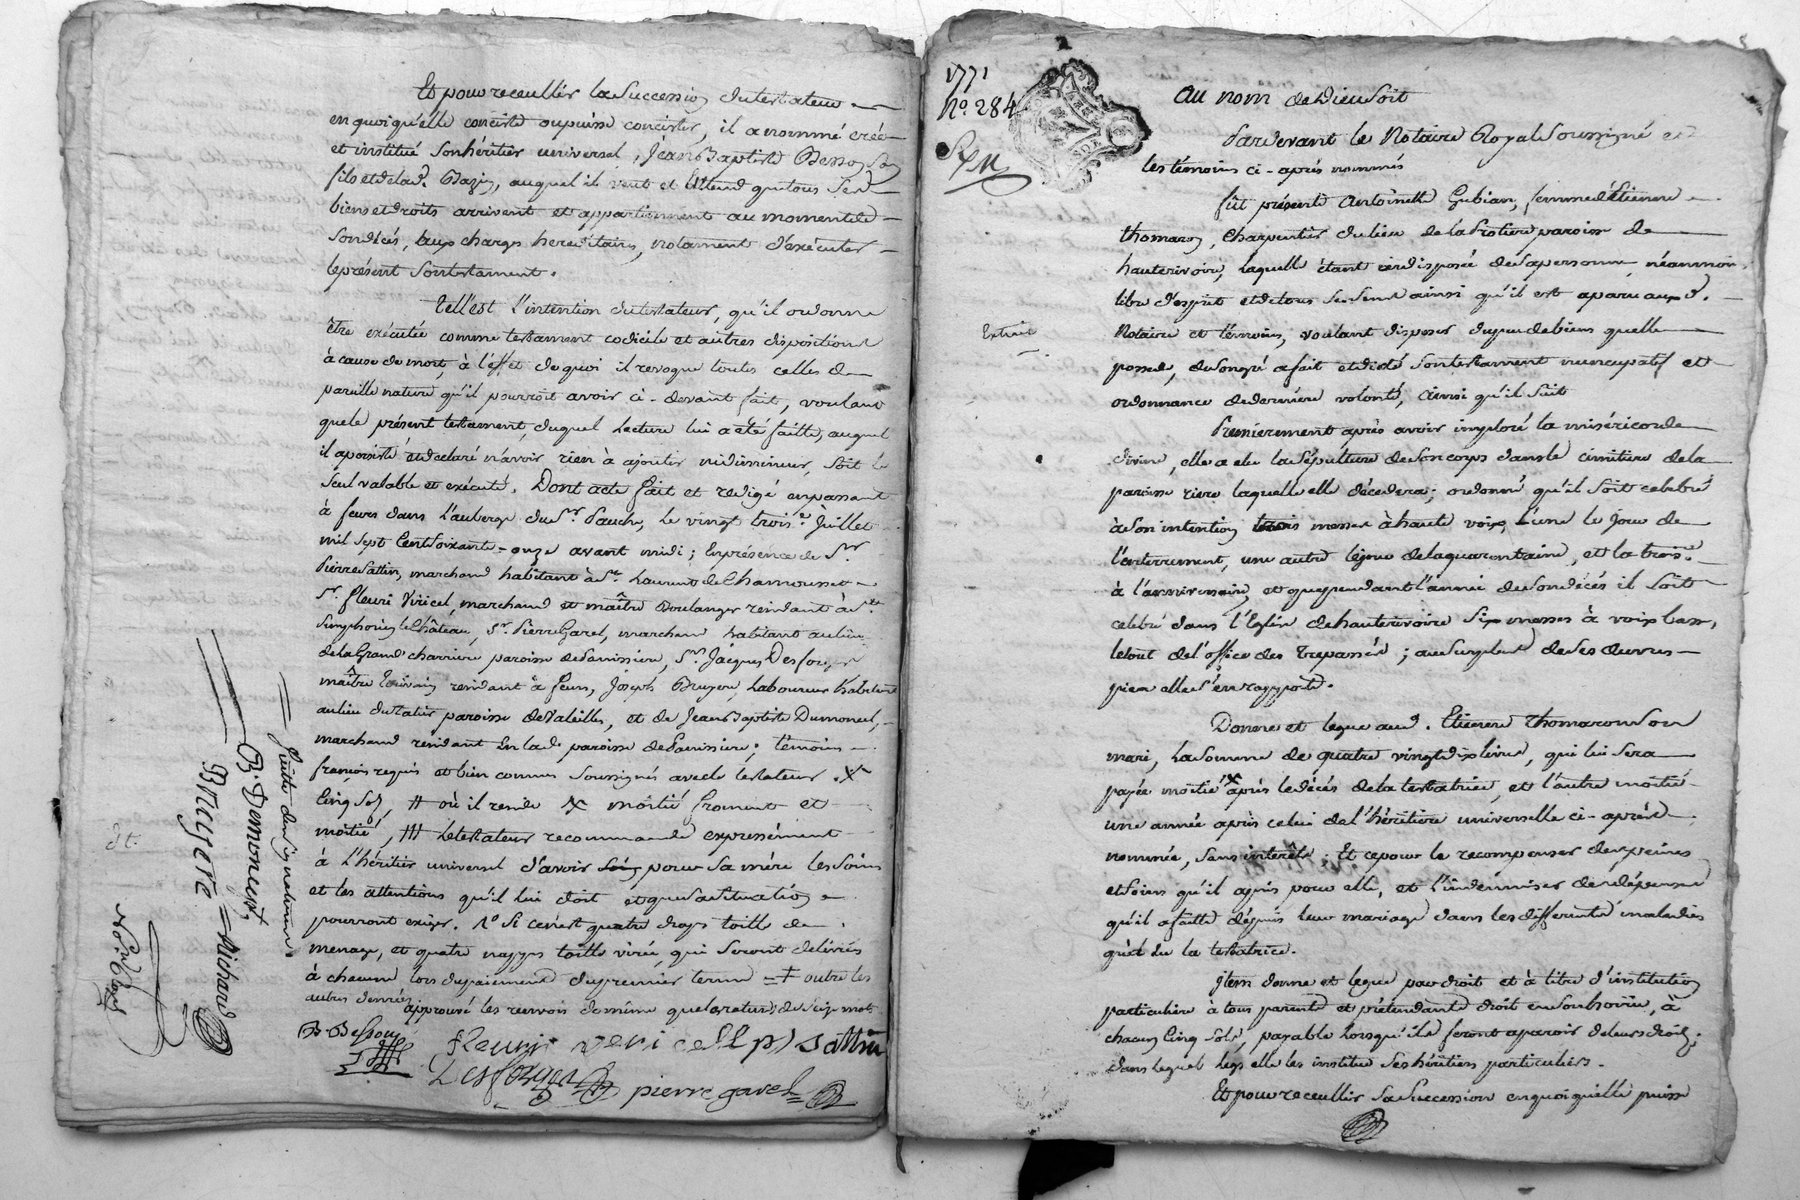 Et pour receullir la Succession du testateur
en quoi qu'elle conciste ou puisse concister, il a nommé créé
et institué Son héritier universel, Jean Baptiste Besson Son
fils et de lad.e Bazin, auquel il veut et attend que tous Ses
biens et droits arrivent et appartiennent au moment de
Son décés, aux charges hereditaires, notament d'exécuter
le présent Son testament.
Tell'est l'intention du testateur, qu'il ordonne
être exécutée comme testament codicile et autres dispositions
à cause de mort, à l'effet de quoi il revoque toutes celles de
pareille nature qu'il pourroit avoir ci-devant fait, voulant
que le présent testament, duquel Lecture lui a été faitte, auquel
il a persisté et declaré n'avoir rien à ajouter ni diminuer, Soit le
Seul valable et exécuté. Dont acte fait et redigé en passant
à feurs dans l'auberge du Sr Pauche, le vingt trois.e Juillet
mil Sept Cent Soixante-onze avant midi; En présence de Sr
Pierre Sattin, marchand habitant à St Laurent de Chamousset
Sr. fleuri Viricel, marchand et maître Boulanger residant à St
Simphorien le Château, Sr. Pierre Garel, marchand habitant au lieu
de la Grand'charriere paroisse de Panissiere, Sr Jacques Desforges
maître Ecrivain residant à feurs, Joseph Bruyere, Laboureur habitant
au lieu du paroisse de Valeilles, et de Jean Baptiste Dumoncel,
marchand residant En lad.e paroisse de Panissiere; témoins
françois requis et bien connus Soussignés avec le testateur. X
Cinq Sols, # où il reside X moitié froment et
moitié, ### Le testateur recommande expressément
à l'héritier universel d'avoir pour Sa mére les Soins
et les attentions qu'il lui doit et que sa situation
pourront exiger. 1° Si ce n'est quatre draps toille de
menage, et quatre nappes toille, qui Seront delivrés
à chacune lors du paiement du premier terme = ‡ outre les
autres denrées
approuvé les renvois de même que la rature de Seize mots
B. Besson
fleurij vericell p sattin
Desforges pierre garel
Suitte des Signatures
B. Demoncest
Bruyere = Richard
Dt.
1771
N° 284
Extrait
Au nom de Dieu Soit
Pardevant le Notaire Royal Soussigné et
les témoins ci-après nommés
fût présente Antoinette Gubian, femme d'Etienne
Thomaron, Charpentier du lieu de la Frotiere paroisse de
hauterivoire, laquelle étant indisposée de Sa personne, néanmoin
libre d'esprit et de tous Ses Sens ainsi qu'il est aparu aux d.
Notaire et témoins, voulant disposer du peu de biens quelle
possede, de Son gré a fait et dicté Son testament nuncupatif et
ordonnance de derniere volonté, ainsi qu'il Suit
Premierement après avoir imploré la miséricorde
divine, elle a elu la Sépulture de Son corps dans le cimitiere de la
paroisse riere laquelle elle décedera; ordonne qu'il Soit celebré
à Son intention trois messes à haute voix, L'une le jour de
l'enterrement, une autre le jour de la quarantaine, et la trois.e
à l'anniversaire, et que pendant l'année de Son décés il Soit
celebré dans l'Eglise de hauterivoire Six messes à voix basse,
le tout de l'office des trepassés; au Surplus de Ses œuvres
pies elle S'en rapporte.
Donne et legue aud. Etienne Thomaron Son
mari, La Somme de quatre vingt dix livres, qui lui Sera
payée moitié X après le décés de la testatrice, et l'autre moitié
une année après celui de l'héritiere universelle ci-après
nommée, Sans intérêts; Et ce pour le recompenser des peines
et Soins qu'il a pris pour elle, et l'indémniser des dépenses
qu'il a faitte depuis leur mariage dans les differentes maladies
qu'a Eu la testatrice.
Item donne et legue par droit et à titre d'institution
particuliere à tous parents et prétendants droit en Son hoirie, à
chacun Cinq Sols, payable lorsqu'ils feront aparoir de leurs droits;
dans lequel legs elle les institue Ses héritiers particuliers.
Et pour receullir Sa Succession en quoi quelle puisse